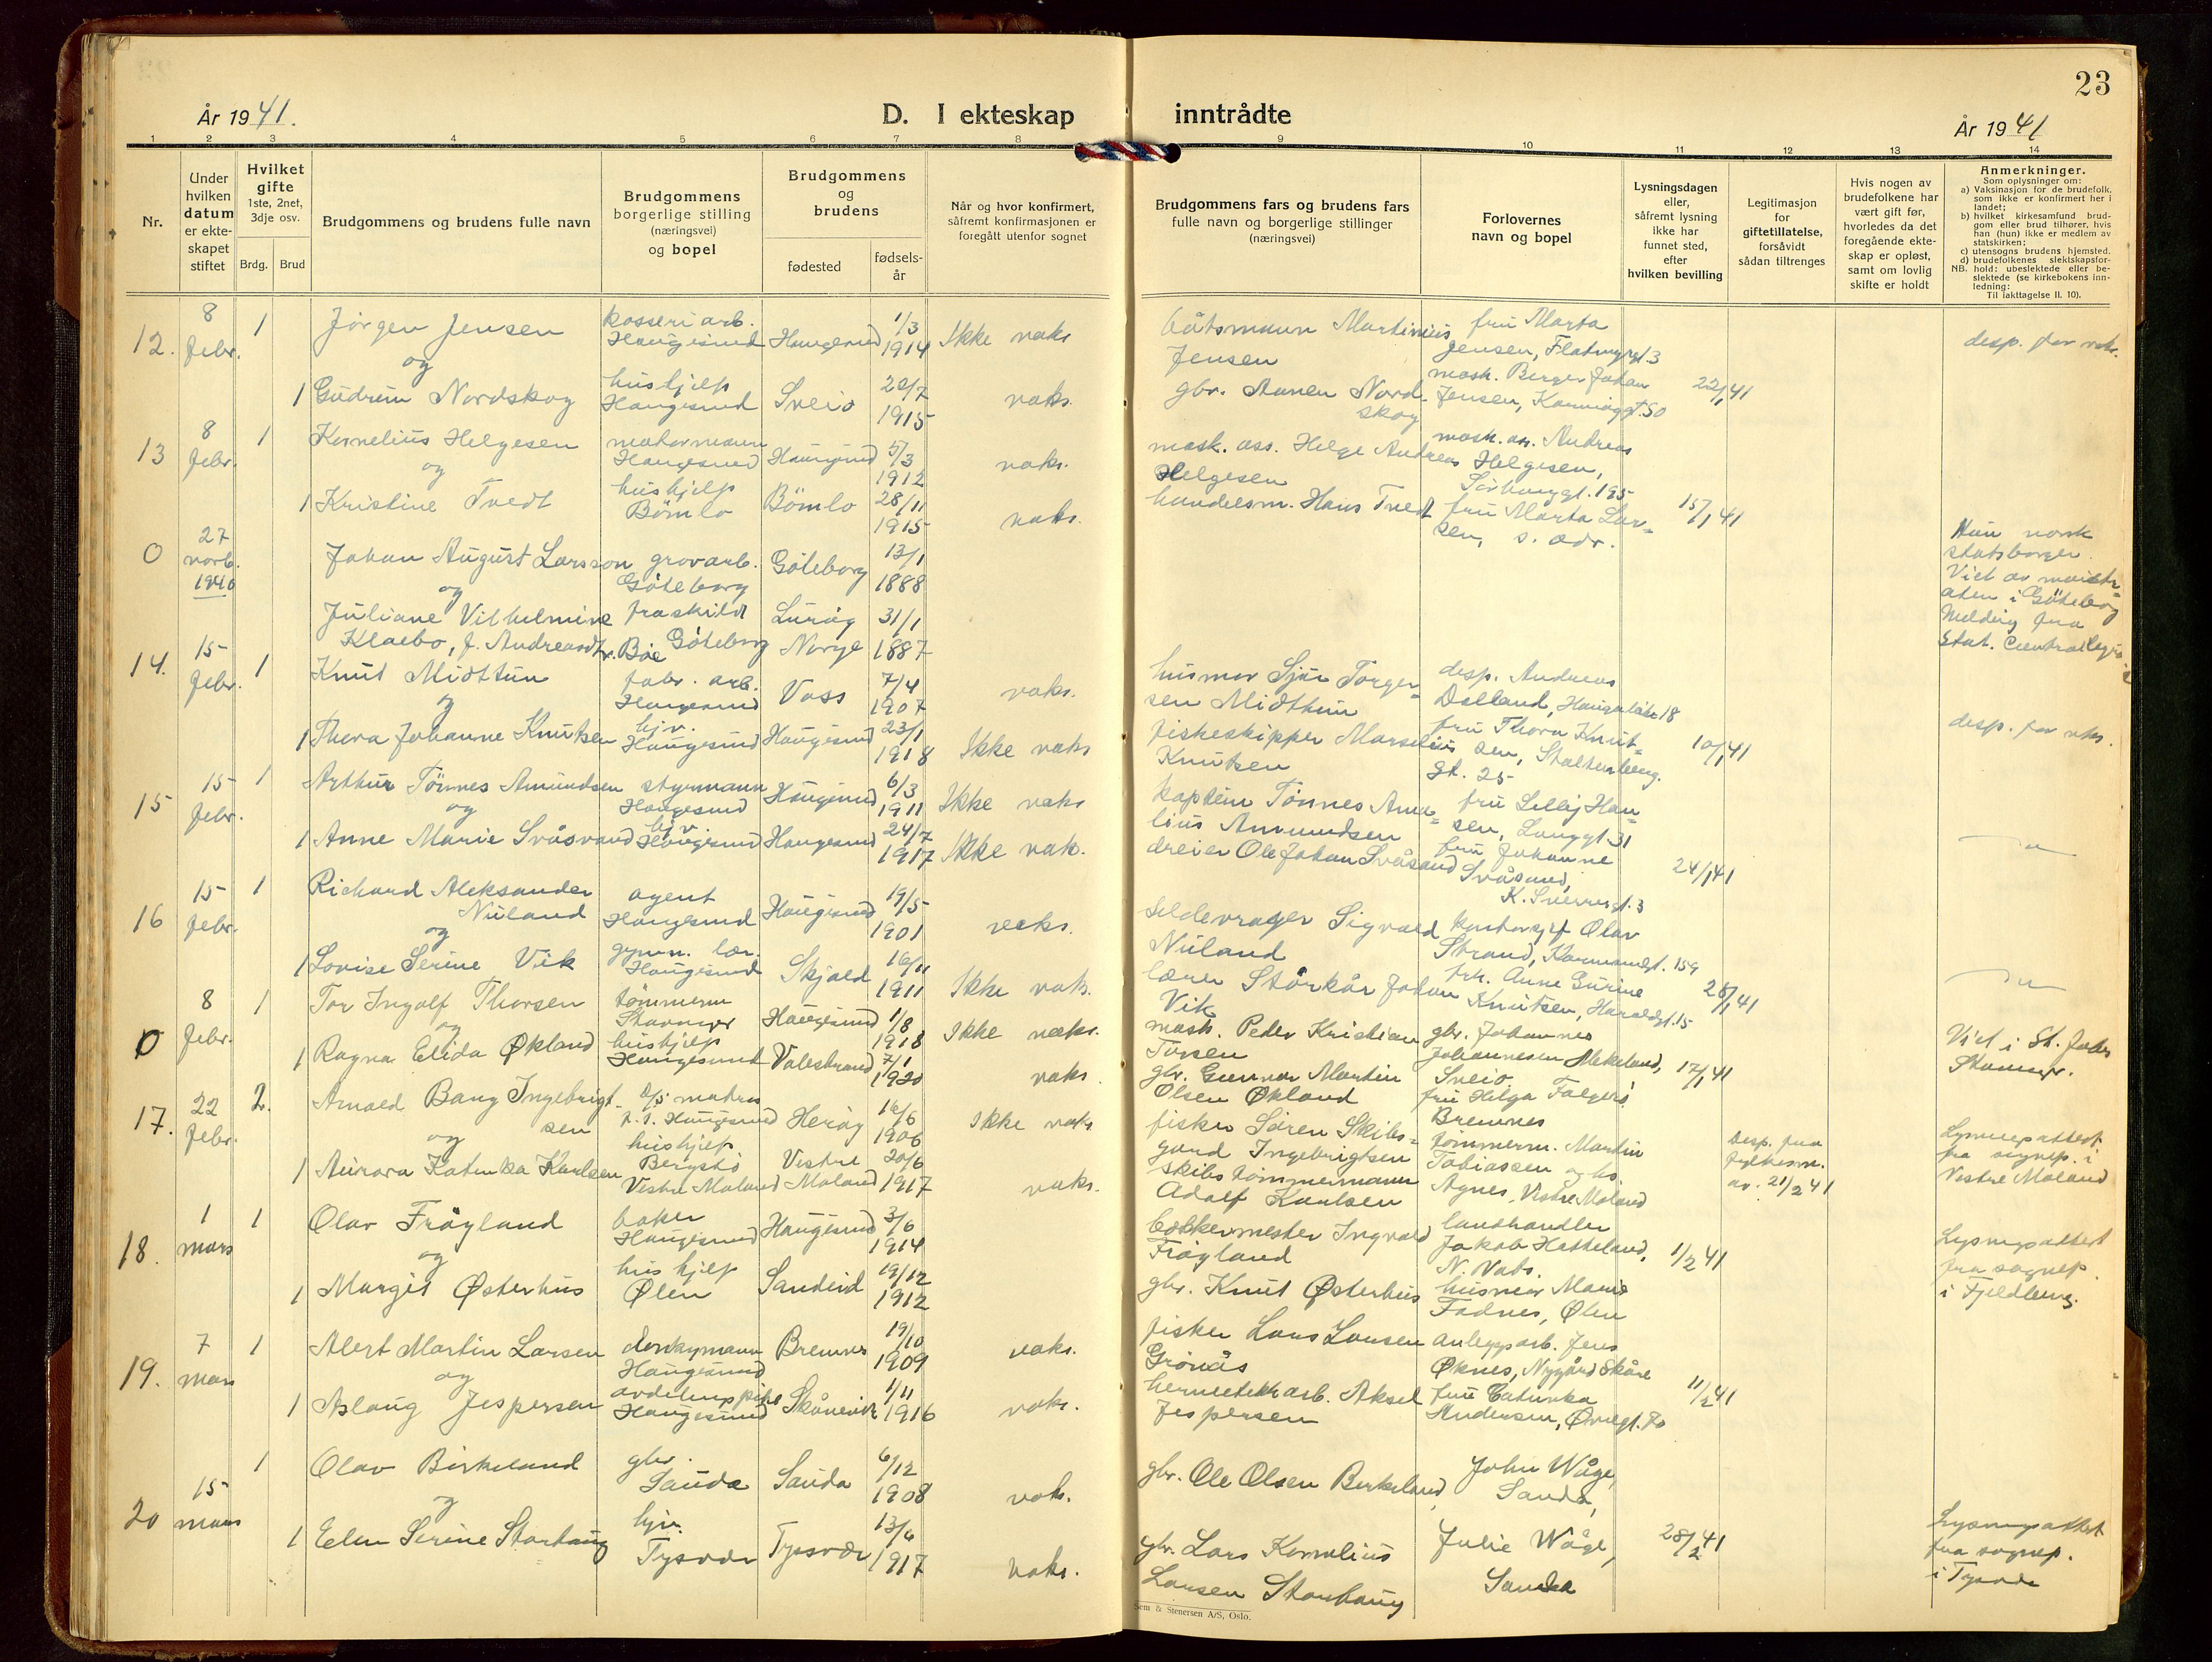 23
År 1941.
D. I ekteskap inntrådte
År 1941
1 2 3 4 5 6 7 8 9 10 11 12 13 14
Nr.
Under hvilken datum er ekteskapet stiftet
Hvilket gifte 1ste, 2net, 3dje osv.
Brdg. Brud
Brudgommens og brudens fulle navn
Brudgommens borgerlige stilling (næringsvei) og bopel
Brudgommens og brudens
fødested
fødselsår
Når og hvor konfirmert, såfremt konfirmasjonen er foregått utenfor sognet
Brudgommens fars og brudens fars fulle navn og borgerlige stillinger (næringsvei)
Forlovernes navn og bopel
Lysningsdagen eller, såfremt lysning ikke har funnet sted, efter hvilken bevilling
Legitimasjon for giftetillatelse, forsåvidt sådan tiltrenges
Hvis nogen av brudefolkene har vært gift før, hvorledes da det foregående ekteskap er opløst, samt om lovlig skifte er holdt
Anmerkninger.
Som oplysninger om:
a) Vaksinasjon for de brudefolk. som ikke er konfirmert her i landet;
b) hvilket kirkesamfund brudgom eller brud tilhører, hvis han (hun) ikke er medlem av statskirken;
c) utensogns brudens hjemsted.
d) brudefolkenes slektskapsforhold: ubeslektede eller beslektede (se kirkebokens innledning:
NB.
Til iakttagelse II. 10).
12. 8 febr. 1 Jørgen Jensen Haugesund Haugesund 1/3 1914 Ikke vaks
båtsmann Martinius Jensen fru Marta Jensen, Flatmyrgt. 3 desp. for vaks.
og
1 Gudrun Nordskog hushjelp Haugesund Sveio 20/7 1915 vaks.
gbr. Aanen Nordskog mask. Berger Johan Jensen, Karmsgt. 50 22/1 41
13 8 febr. 1 Kornelius Helgesen motormann Haugesund Haugesund 5/3 1912 vaks.
mask. ass. Helge Andreas Helgesen mask. ass. Andreas Helgesen, Sørhauggt. 195
og
1 Kristine Tvedt hushjelp Bömlo Bömlo 28/11 1915 vaks.
handelsm. Hans Tvedt fru Marta Larsen, s. adr. 15/1 41
0 27 novb. 1940 Johan August Larsson grovarb. Göteborg Göteborg 13/1 1888
og
Juliane Vilhelmine Klaebo, f. Andreasdtr. Bøe fraskilt Göteborg Lurøy Norge 31/1 1887
Hun norsk statsborger. Viet av i Göteborg Melding fra Stat.
14. 15 febr. 1 Knut Midttun fabr. arb. Haugesund Voss 7/4 1907 vaks.
husmor Sjur Torgersen Midthun desp. Andreas
og
1 Thora Johanne Knutsen hjv. Haugesund Haugesund 23/1 1918 Ikke vaks
fiskeskipper Marselius Knutsen fru Thora Knutsen, Stoltenberg. gt. 25 10/1 41 desp. for vks.
15 15 febr. 1 Arthur Tönnes Amundsen styrmann Haugesund Haugesund 6/3 1911 Ikke vaks
kaptein Tönnes Amalius Amundsen fru Lilly Hansen, Langgt 31
og
1 Anne Marie Svåsand hjv. Haugesund Haugesund 24/7 1917 Ikke vak.
dreier Ole Johan Svåsand fru Johanne Svåsand, K. Sverresgt. 3 24/1 41
16 15 febr. 1 Richard Aleksander Nuland agent Haugesund Haugesund 19/5 1901 vaks.
sildevrager Sigvald Nuland kontorsjef Olav Strand, Karmsundgt. 159
og
1 Lovise Serine Vik gymn. lær. Haugesund Skjold 16/11 1911 Ikke vaks.
lærer Störkår Johan Vik frk. Anne Gurine Knutsen, Haraldsgt. 15 28/1 41
0 8 febr. 1 Tor Ingolf Thorsen tömmerm Stavanger Haugesund 1/8 1918 Ikke vaks.
mask. Peder Kristian Torsen gbr. Johannes Johannesen Økland, Sveio 17/1 41 Viet i St. Stavanger.
og
1 Ragna Elida Økland hushjelp Haugesund Valestrand 7/1 1920 vaks.
gbr. Gunnar Martin Olsen Økland fru Helga Bremnes
17. 22 febr. 2. Arnold Bang Ingebrigtsen matros Haugesund Herøy 16/6 1906 Ikke vaks
fisker Sören Skibsgard Ingebrigtsen tömmerm. Martin Tobiassen og hs. Agnes, Vestre Moland Desp. fra fylkesm. av. 21/2 41 Lysningsattest fra sognep. i Vestre Moland
og
1 Aurora Katinka Karlsen hushjelp Bergstö Vestre Moland Vestre Moland 20/6 1917 vaks.
skibstømmermann Adolf Karlsen
18. 1 mars 1 Olav Fröyland baker Haugesund Haugesund 3/6 1914
bakermester Ingvald Fröyland landhandler Jakob Hatteland, N. Vats. 1/2 41 Lysningsattest fra sognep. i Fjeldberg.
og
1 Margit Østerhus hushjelp Ølen Sandeid 19/12 1912
gbr. Knut Østerhus husmor Marie Fadnes, Ølen
19. 7 mars 1 Alert Martin Larsen donkymann Haugesund Bremnes 19/10 1909 vaks.
fisker Lars Larsen Grönås anleggsarb. Jens Øknes, Nygård Skåre 11/2 41
og
1 Aslaug Jespersen Haugesund Skånevik 1/11 1916 vaks.
hermetikkarb. Aksel Jespersen fru Catinka Andersen, Øvregt. 70
20 15 mars 1 Olav Birkeland gbr. Sauda Sauda 6/12 1908 vaks.
gbr. Ole Olsen Birkeland, John Våge, Sauda,
og
1 Elen Serine Storhaug hjv. Tysvær Tysvær 13/6 1917 vaks.
gbr. Lars Kornelius Larsen Storhaug Julie Våge, Sauda 28/2 41 Lysningsattest fra sognep. i Tysvær
Sem & Stenersen A/S, Oslo.